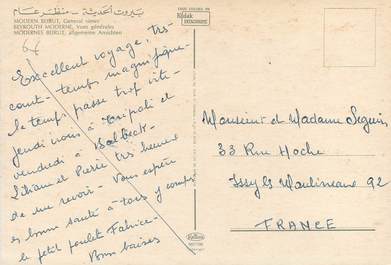 بيروت الحديثة - منظر عام
MODERN BEIRUT, General views
BEYROUTH MODERNE, Vues générales
MODERNES BEIRUT, allgemeine Ansichten
Kodak
Excellent voyage, très
court - temps magnifique -
le temps passe trop vite -
jeudi nous à Tripoli et
vendredi à Balbeck -
Liliane et Pierre très heureux
de me revoir - Vous espère
en bonne santé à tous y compris
le petit poulet Fabrice -
Bons baisers
Monsieur et Madame Seguin
33 Rue Hoche
Issy les Moulineaux 92
FRANCE